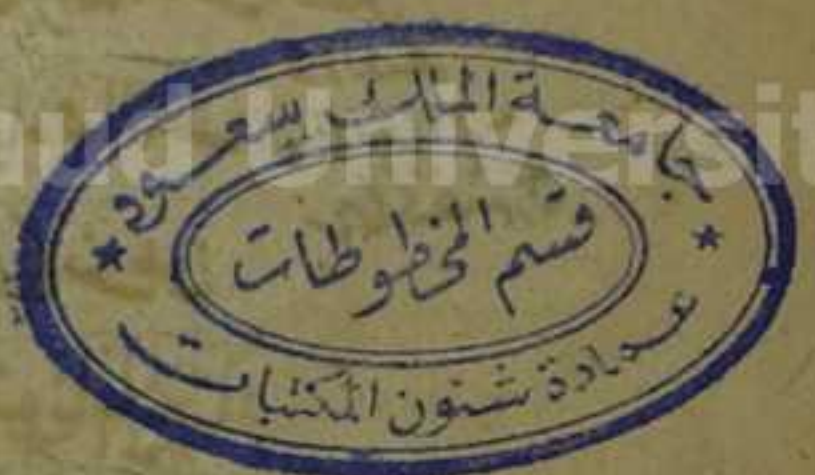 جامعة الملك سعود
قسم المخطوطات
عمادة شئون المكتبات
ud Universit